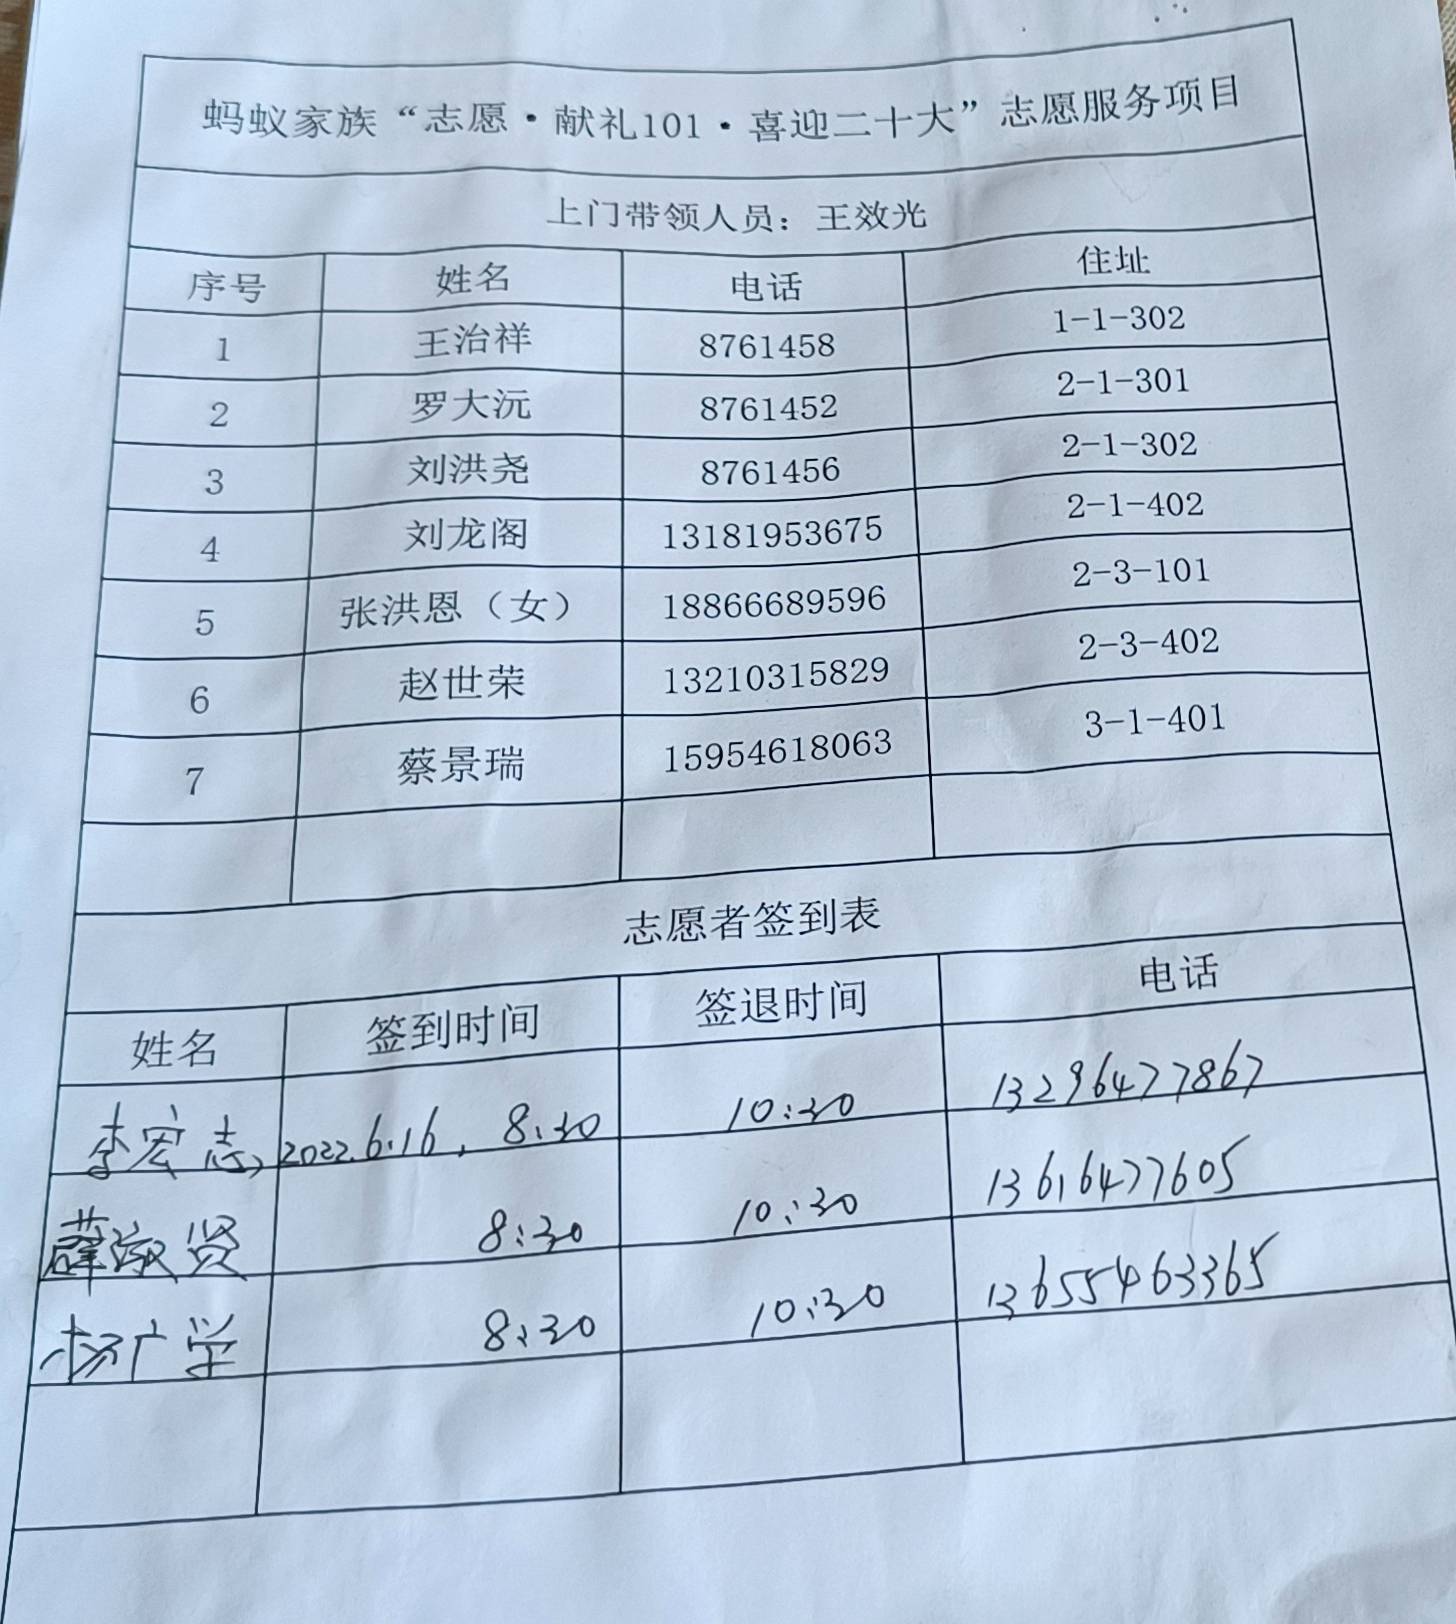 蚂蚁家族“志愿·献礼101·喜迎二十大”志愿服务项目
上门带领人员：王效光
序号 姓名 电话 住址
1 王治祥 8761458 1-1-302
2 罗大沅 8761452 2-1-301
3 刘洪尧 8761456 2-1-302
4 刘龙阁 13181953675 2-1-402
5 张洪恩（女） 18866689596 2-3-101
6 赵世荣 13210315829 2-3-402
7 蔡景瑞 15954618063 3-1-401
志愿者签到表
姓名 签到时间 签退时间 电话
李宏志, 2022.6.16. 8:30 10:30 13296477867
薛淑贤 8:30 10:30 13616477605
杨广学 8:30 10:30 13655463365